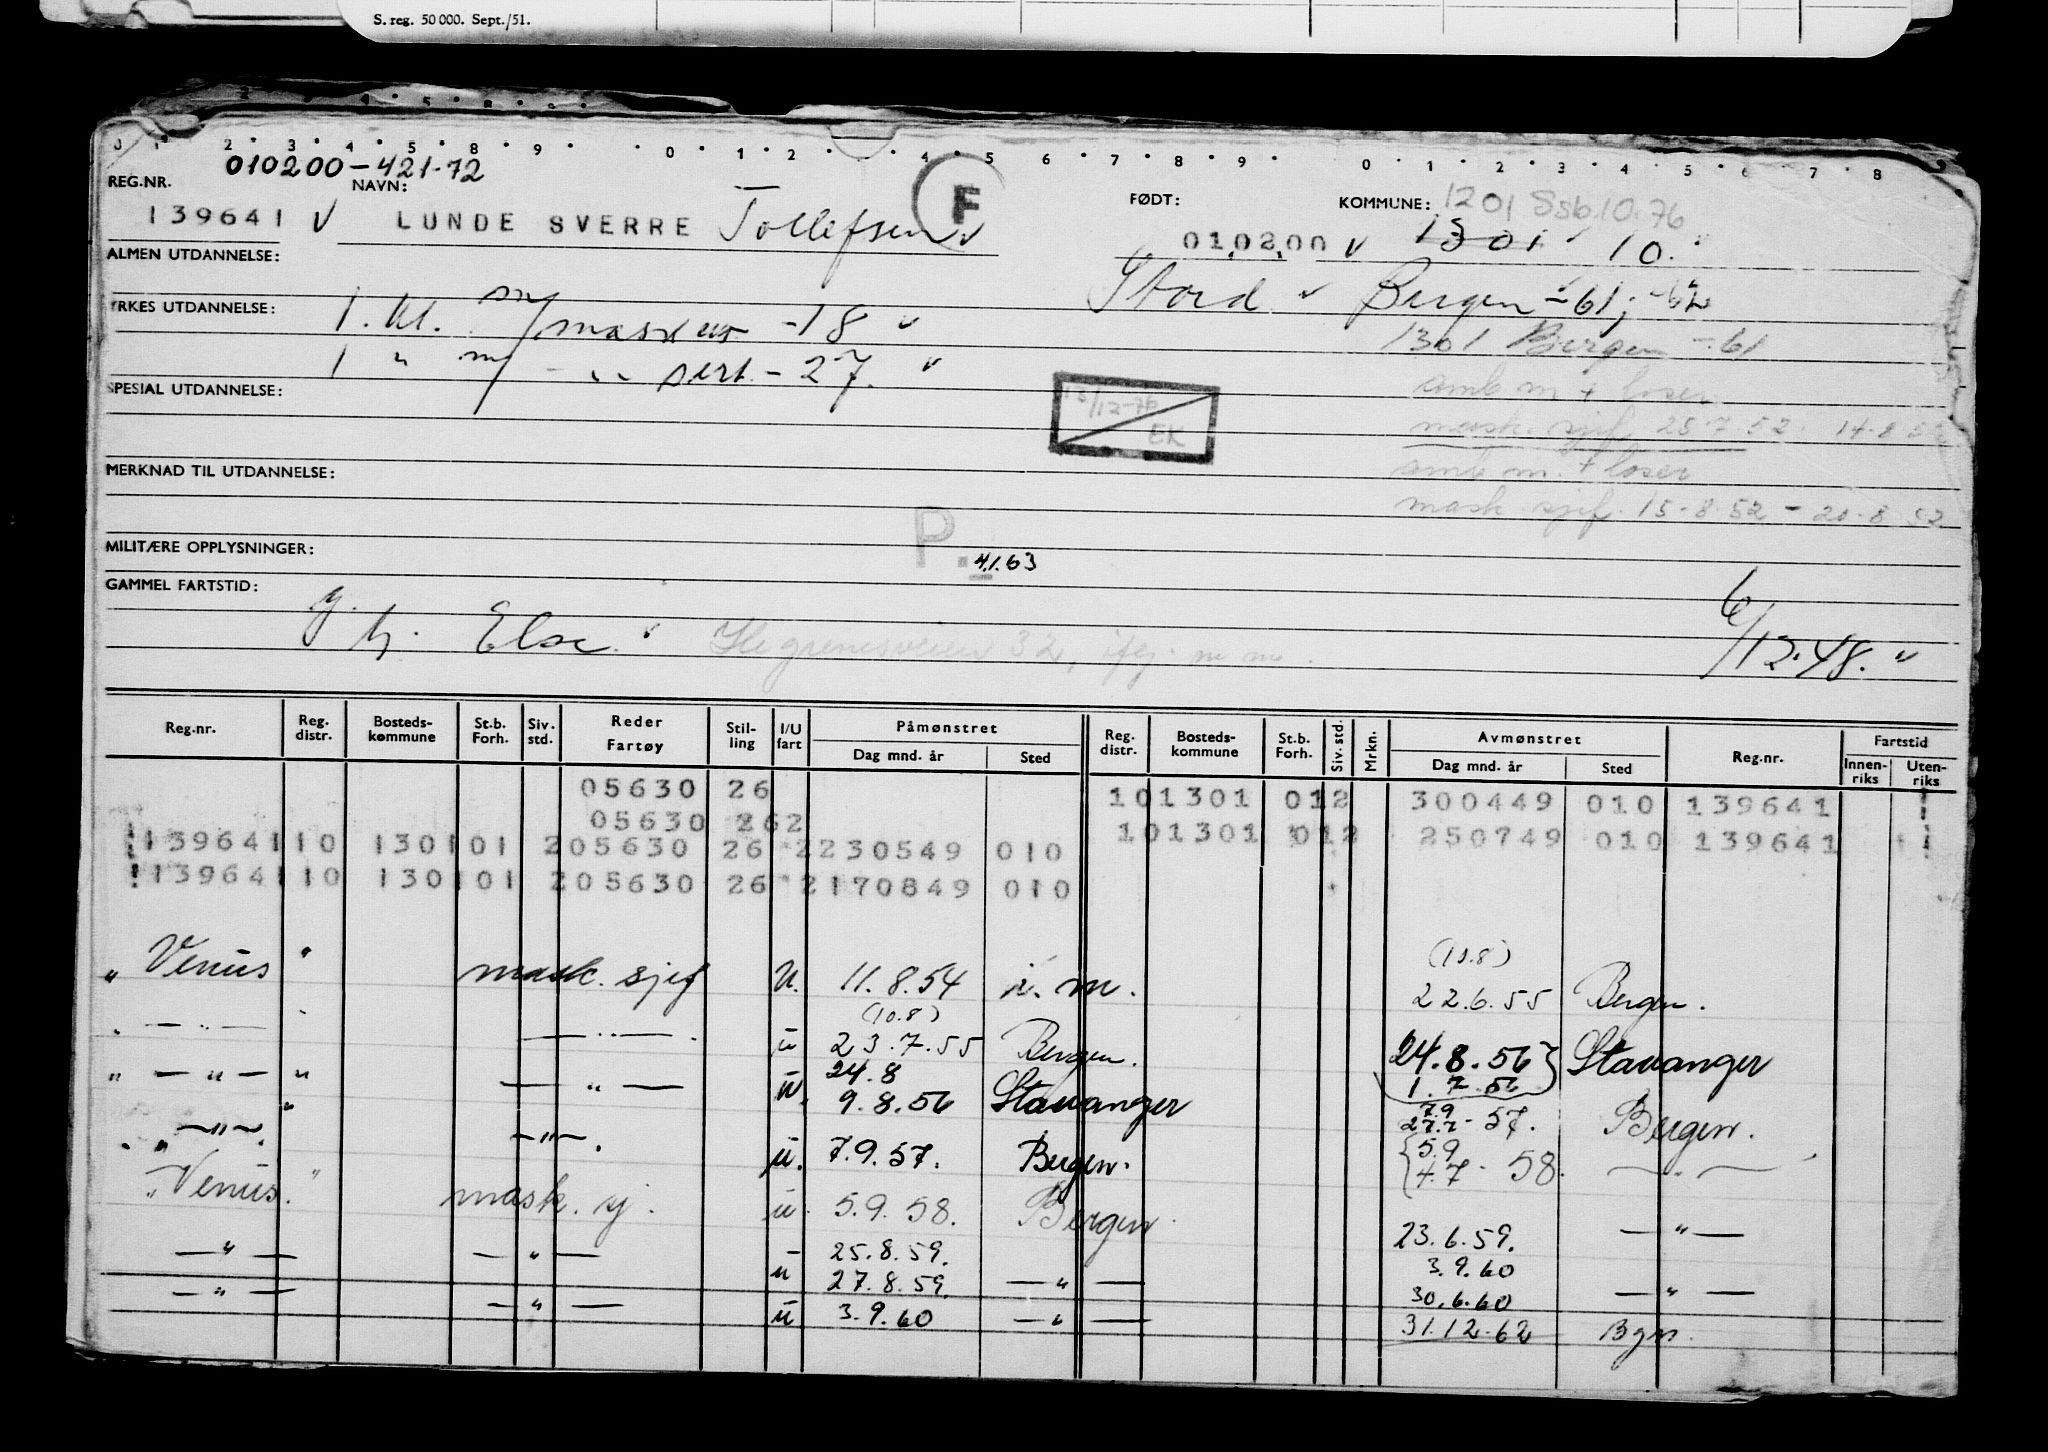 S. reg. 50 000. Sept./51.
0 1 2 3 4 5 8 9 0 1 2 4 5 6 7 8 9 0 1 2 3 4 5 6 7 8
010200-421-72
REG.NR. NAVN: F FØDT: KOMMUNE: 1201 Ssb. 10.76
139641 v LUNDE SVERRE Tollefsen v 01.02.00 v 1301 10.
ALMEN UTDANNELSE:
Stord v Bergen -61; -62
YRKES UTDANNELSE: 1. kl. 18 v
1301 Bergen -61
1 " m/ - " - sert. - 27. v
SPESIAL UTDANNELSE:
12/12-76
EK
amb m + loser
mask. sjef 25.7.52 - 14.8.52
MERKNAD TIL UTDANNELSE:
amb m. + loser
mask. sjef. 15-8-52 - 20-8-52
P.
MILITÆRE OPPLYSNINGER: 4.1.63
GAMMEL FARTSTID:
g. h. Else. v 32, 6/12.48. v
Reg.nr. Reg. distr. Bosteds-kommune St.b. Forh. Siv. std. Reder Fartøy Stil-ling I/U fart Påmønstret Dag mnd. år Sted Reg. distr. Bosteds-kommune St.b. Forh. Siv. std. Mrkn. Avmønstret Dag mnd. år Sted Reg.nr. Fartstid Innen-riks Uten-riks
05630 26 101301 012 300449 010 139641 1
05630 262 101301 012 250749 010 139641 1
139641 10 1301 01 2 05630 26 2 230549 010
139641 10 1301 01 2 05630 26 2 170849 010
" Venus " mask. sjef U. 11.8.54 i. m. (10.8) 22.6.55 Bergen.
(10.8)
" — " — — " — u 23.7.55 Bergen. 24.8.56 } Stavanger
24.8 1.7.56
" — " — " — " — u. 9.8.56 Stavanger 7.9 27.7 - 57. Bergen.
" — " — — " — u. 7.9.57. Bergen. { 5.9 4.7 - 58. — " —
" Venus. " mask. sj. u. 5.9.58. Bergen 23.6.59. — " —
— " — — " — u 25.8.59. 3.9.60
27.8.59. — " — 30.6.60 — " —
— " — — " — u 3.9.60 — " — 31.12.62 Bgn.